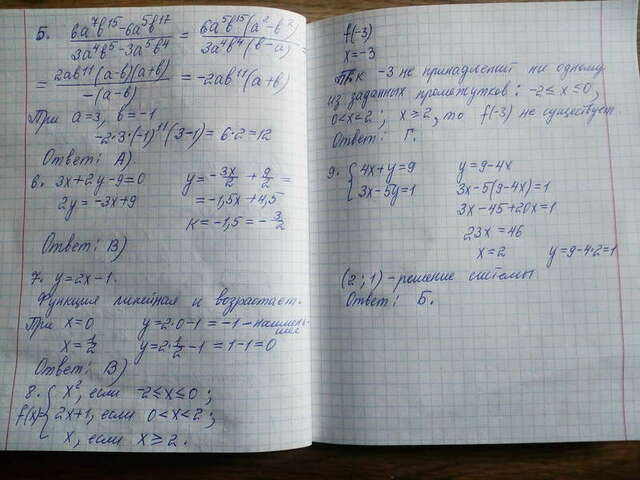 5. (6a⁷b¹⁵ - 6a⁵b¹⁷)/(3a⁴b⁵ - 3a⁵b⁴) = 6a⁵b¹⁵(a² - b²)/3a⁴b⁴(b - a) =
= 2ab¹¹(a-b)(a+b)/-(a-b) = -2ab¹¹(a+b)
При a=3, b=-1
-2·3·(-1)¹¹(3-1) = 6·2 = 12
Ответ: А)
6. 3x+2y-9=0 y = -3x/2 + 9/2 =
2y = -3x+9 = -1,5x + 4,5
к = -1,5 = -3/2
Ответ: В)
7. y=2x-1.
Функция линейная и возрастает.
При x=0 y=2·0-1 = -1 - наимень-
шее
x=1/2 y=2·1/2-1 = 1-1=0
Ответ: В)
8. x², если -2≤x≤0;
f(x)= { 2x+1, если 0<x<2;
x, если x≥2.
f(-3)
x=-3
Т.к -3 не принадлежит ни одному
из заданных промежутков: -2≤x≤0,
0<x<2; x≥2, то f(-3) не существует.
Ответ: Г.
9. { 4x+y=9 y=9-4x
3x-5y=1 3x-5(9-4x)=1
3x-45+20x=1
23x=46
x=2 y=9-4·2=1
(2;1) - решение системы.
Ответ: Б.